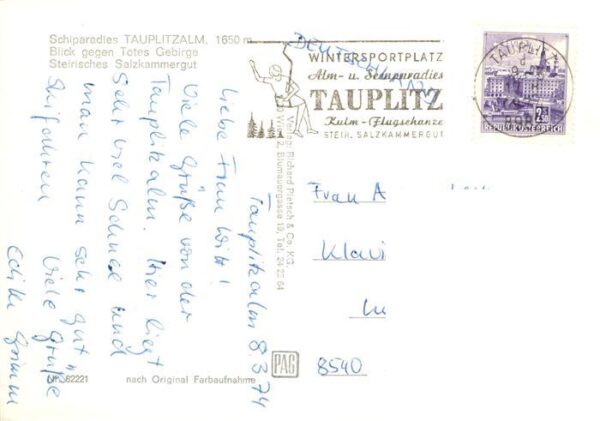 Schiparadies TAUPLITZALM, 1650 m
Blick gegen Totes Gebirge
Steirisches Salzkammergut
DEUTSCHLAND
WINTERSPORTPLATZ
Alm- u. Seenparadies
TAUPLITZ
Kulm-Flugschanze
STEIR. SALZKAMMERGUT
TAUPLITZ
2.50
REPUBLIK ÖSTERREICH
Tauplitzalm 8.3.74
Liebe Frau
Viele Grüße von der
Tauplitzalm. Hier liegt
Sehr viel Schnee und
man kann sehr gut
Skifahren
Viele Grüße
Verlag: Richard Pietsch & Co. KG.
Wien 2, Blumauergasse 19, Tel. 24 22 64
Frau A
8540
PAG
Nr. 62221
nach Original Farbaufnahme